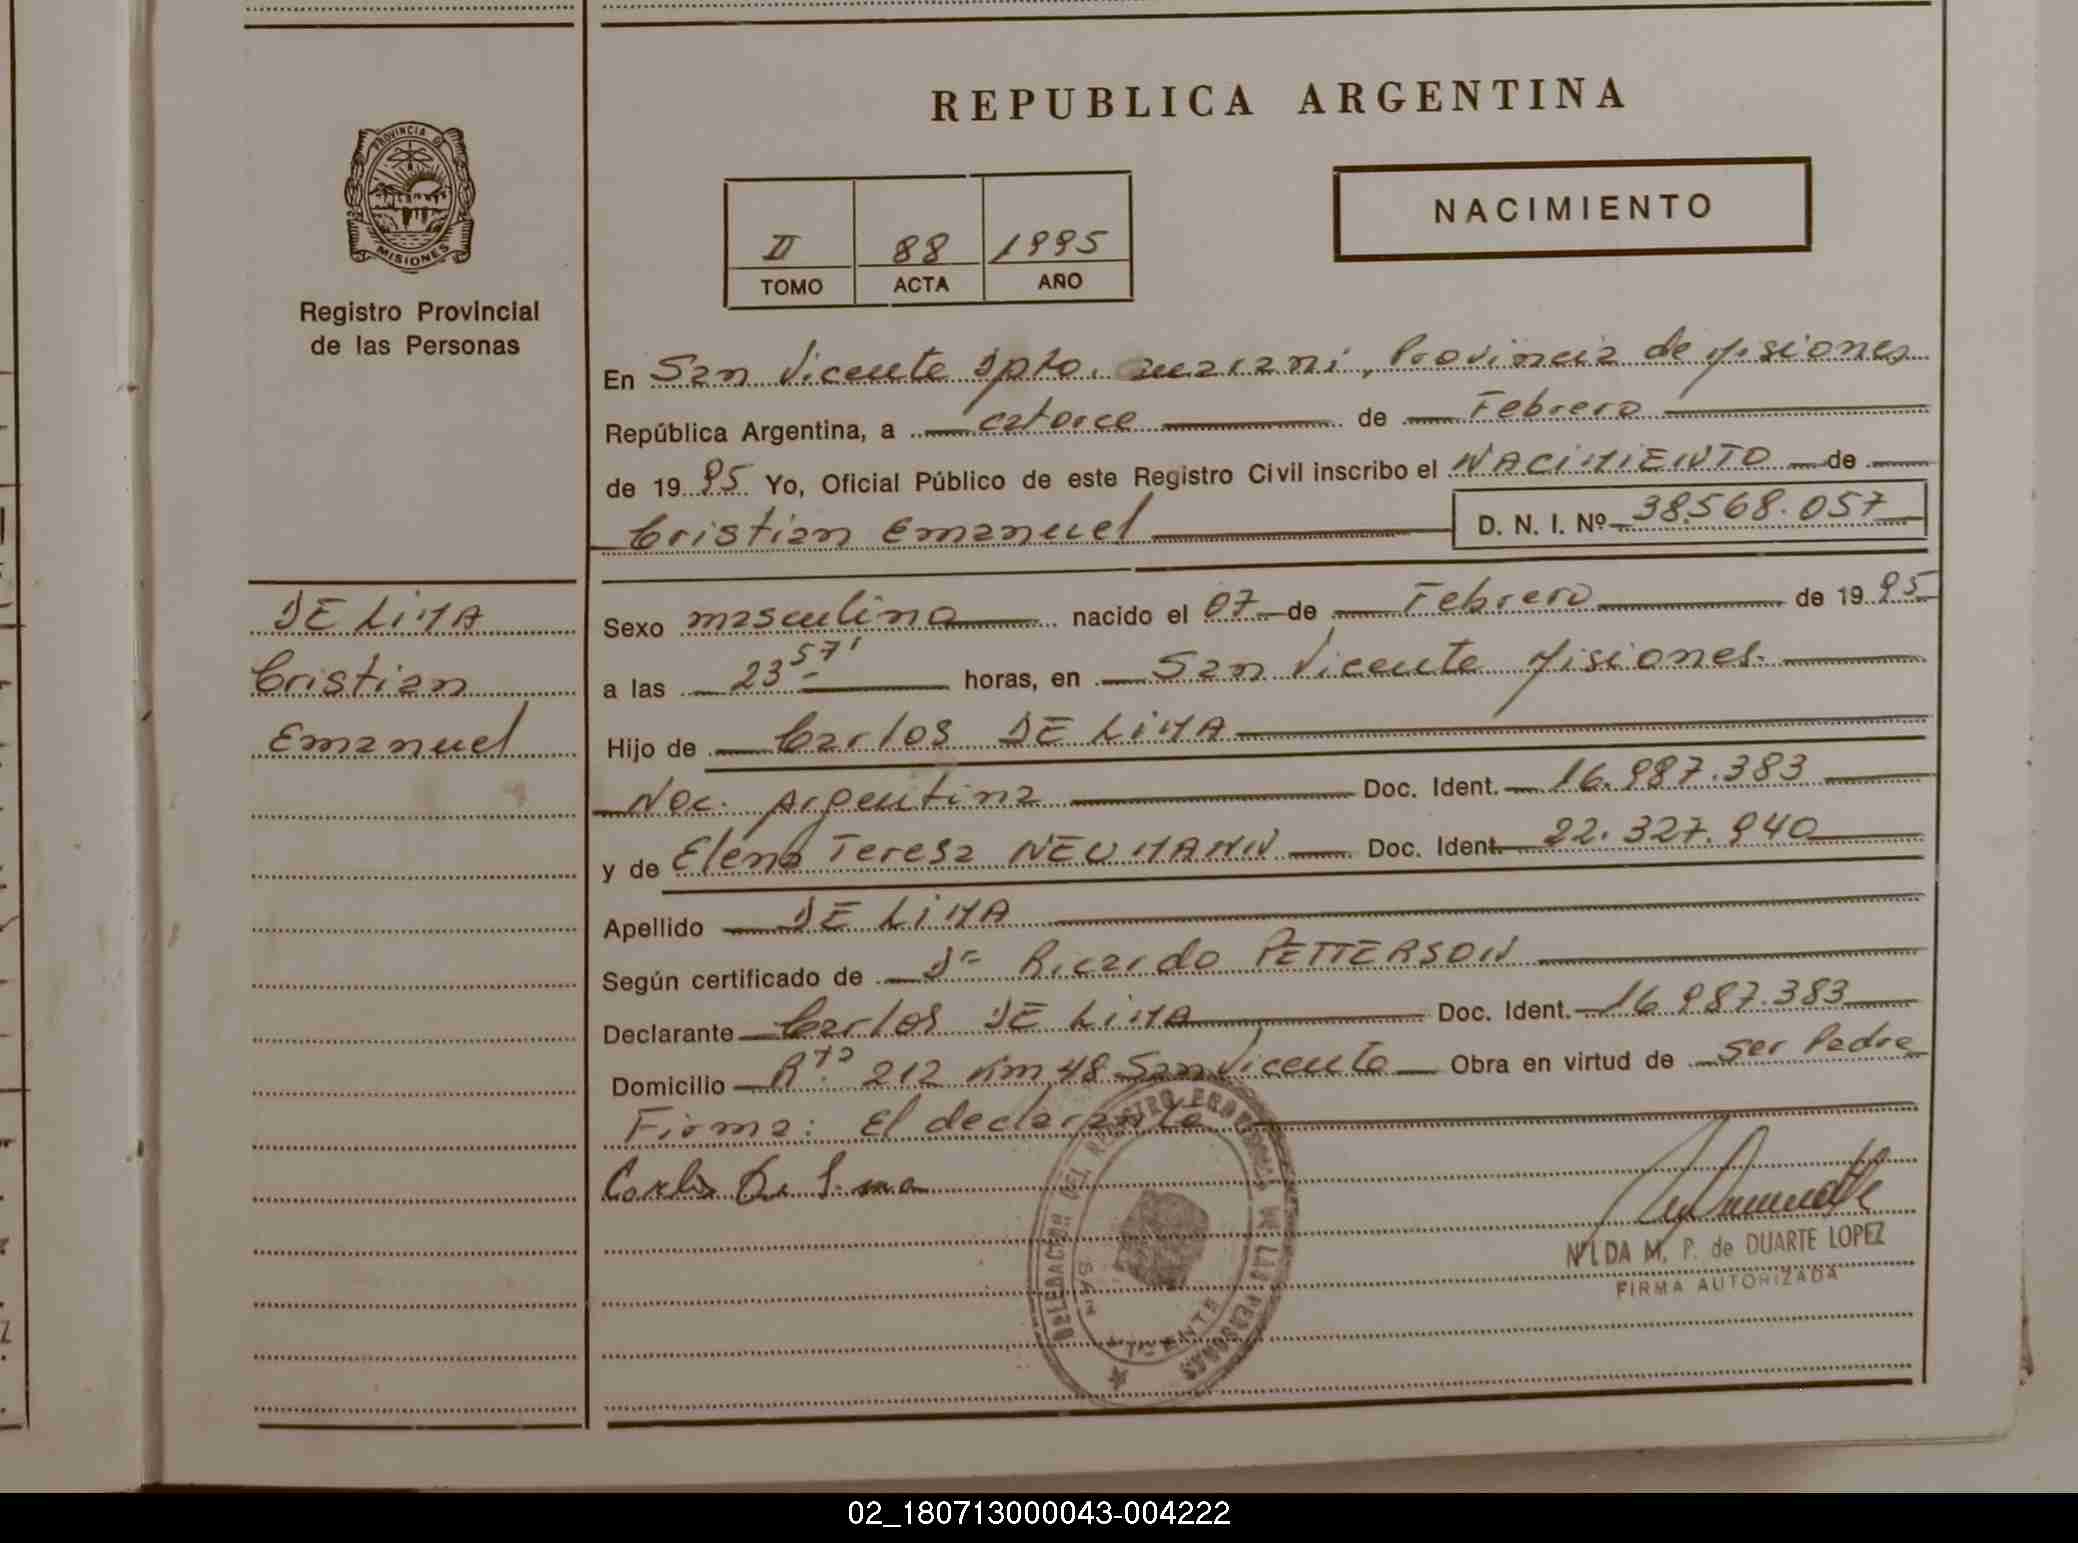 REPUBLICA ARGENTINA
PROVINCIA DE
MISIONES
Registro Provincial
de las Personas
NACIMIENTO
II 88 1995
TOMO ACTA AÑO
En San Vicente Dpto. Guarani, Provincia de Misiones
República Argentina, a catorce de Febrero
de 1995 Yo, Oficial Público de este Registro Civil inscribo el NACIMIENTO de
Cristian Emanuel D. N. I. Nº 38.568.057
DE LIMA
Cristian
Emanuel
Sexo masculino nacido el 07 de Febrero de 1995
a las 23 57' horas, en San Vicente Misiones.
Hijo de Carlos DE LIMA
Nac. Argentina Doc. Ident. 16.987.383
y de Elena Teresa NEUMANN Doc. Ident. 22.327.940
Apellido DE LIMA
Según certificado de Dr Ricardo PETTERSON
Declarante Carlos DE LIMA Doc. Ident. 16.987.383
Domicilio Rta. 212 Km 48 San Vicente Obra en virtud de ser Padre
Firma: El declarante
Carlos De Lima
DELEGACION DEL REGISTRO PROVINCIAL DE LAS PERSONAS
SAN VICENTE
NILDA M. P. de DUARTE LOPEZ
FIRMA AUTORIZADA
02_180713000043-004222